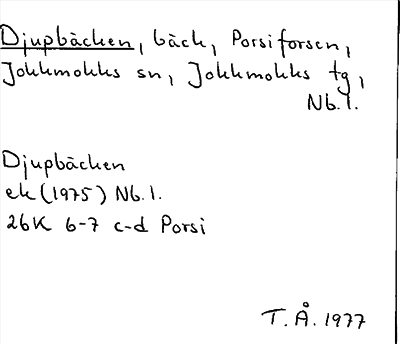 Djupbäcken, bäck, Porsiforsen,
Jokkmokks sn, Jokkmokks tg,
Nb.l.
Djupbäcken
ek (1975) Nb.l.
26K 6-7 c-d Porsi
T.Å. 1977